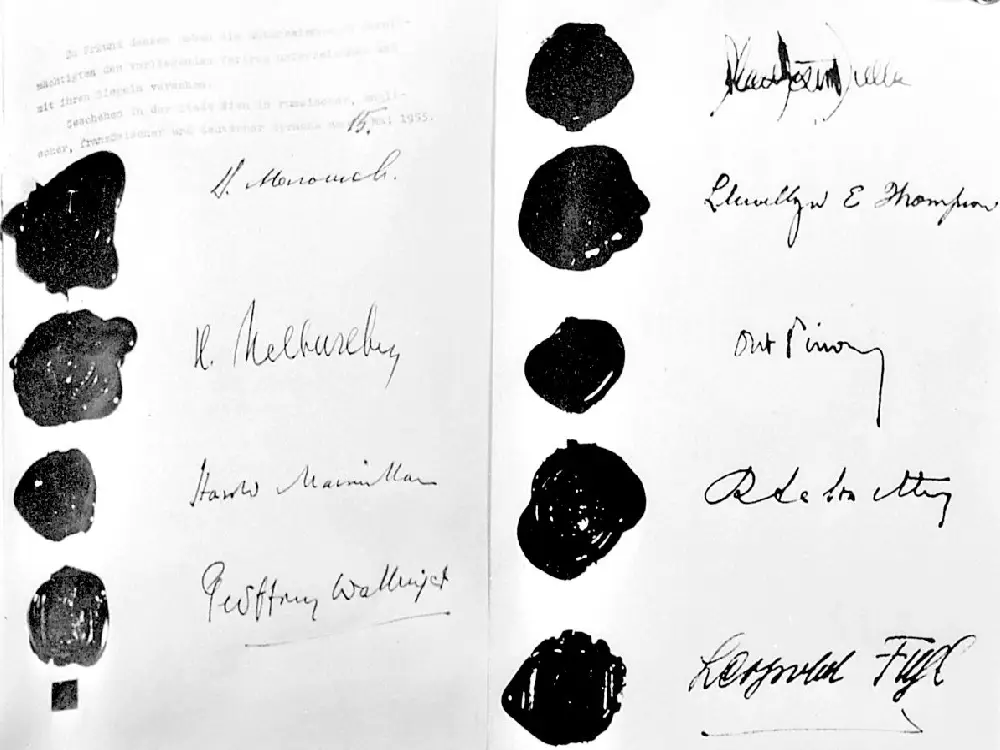 Zu Urkund dessen haben die unterzeichneten Bevoll-
mächtigten den vorliegenden Vertrag unterzeichnet und
mit ihren Siegeln versehen.
Geschehen in der Stadt Wien in russischer, engli-
scher, französischer und deutscher Sprache den 15. Mai 1955.
Harold Macmillan
Geoffrey Wallinger
John Foster Dulles
Llewellyn E Thompson
Ant Pinay
R Lalouette
Leopold Figl